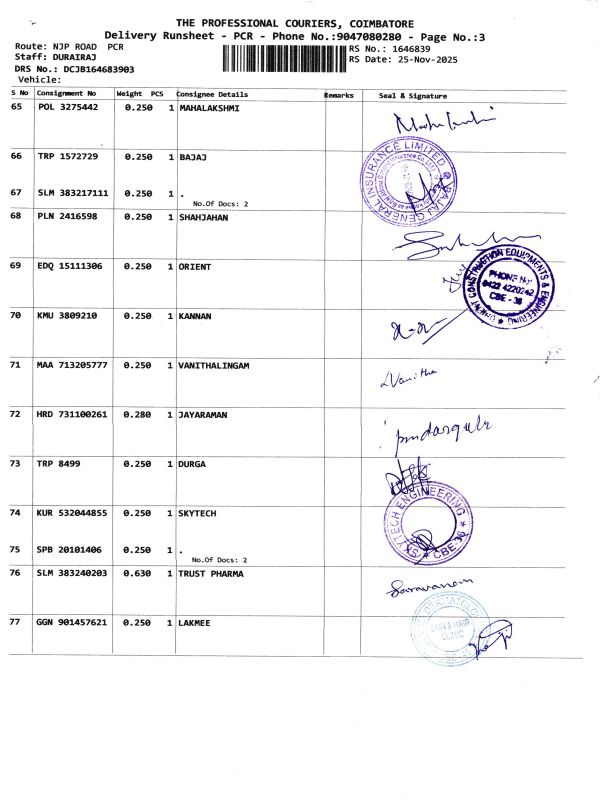 THE PROFESSIONAL COURIERS, COIMBATORE
Delivery Runsheet - PCR - Phone No.:9047080280 - Page No.:3
Route: NJP ROAD PCR
Staff: DURAIRAJ
DRS No.: DCJB164683903
Vehicle:
RS No.: 1646839
RS Date: 25-Nov-2025
S No Consignment No Weight PCS Consignee Details Remarks Seal & Signature
65 POL 3275442 0.250 1 MAHALAKSHMI
66 TRP 1572729 0.250 1 BAJAJ
BAJAJ GENERAL INSURANCE LIMITED
67 SLM 383217111 0.250 1 .
No.Of Docs: 2
68 PLN 2416598 0.250 1 SHAHJAHAN
69 EDQ 15111306 0.250 1 ORIENT
ORIENT CONSTRUCTION EQUIPMENTS & ENGINEERING
PHONE No:
0422 4220242
CBE - 38
70 KMU 3809210 0.250 1 KANNAN
71 MAA 713205777 0.250 1 VANITHALINGAM
Vanitha
72 HRD 731100261 0.280 1 JAYARAMAN
73 TRP 8499 0.250 1 DURGA
74 KUR 532044855 0.250 1 SKYTECH
SKYTECH ENGINEERING
CBE
75 SPB 20101406 0.250 1 .
No.Of Docs: 2
76 SLM 383240203 0.630 1 TRUST PHARMA
Saravanan
77 GGN 901457621 0.250 1 LAKMEE
SKIN & HAIR
CLINIC